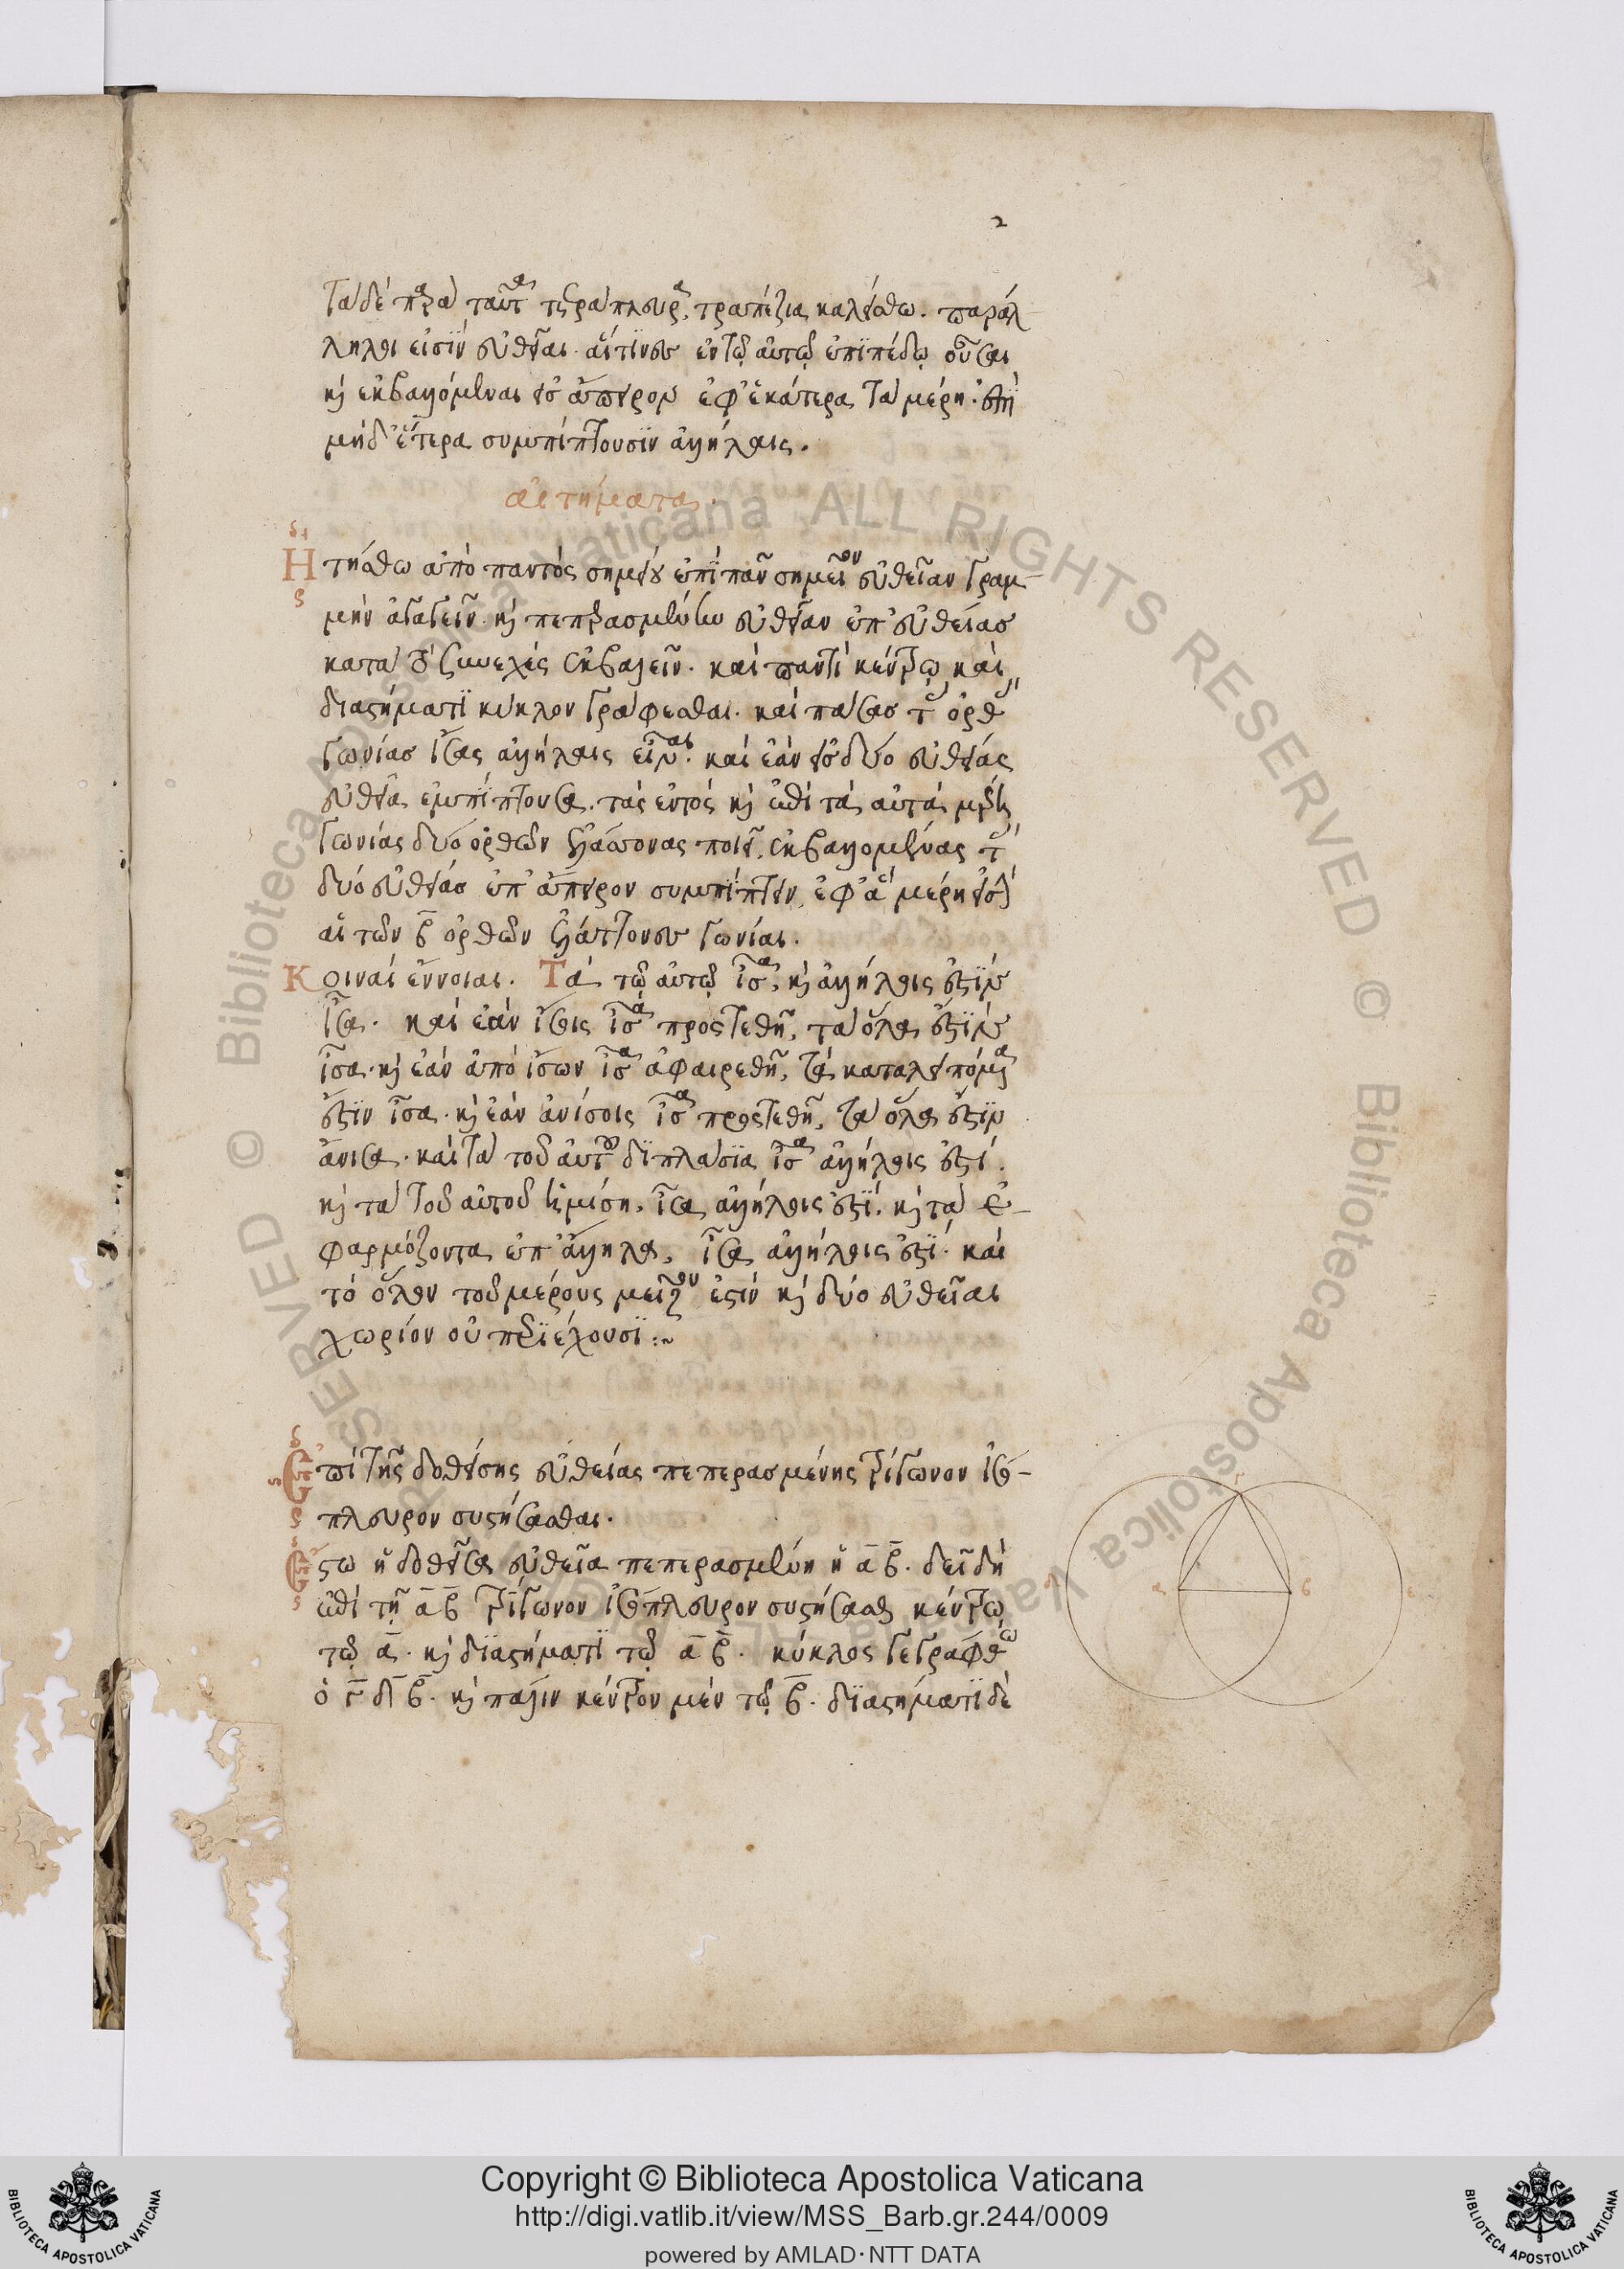 2
Τὰ δὲ παρὰ ταῦτα τετράπλευρα, τραπέζια καλείσθω. παράλ
ληλοι εἰσὶν εὐθεῖαι. αἵτινες ἐν τῷ αὐτῷ ἐπιπέδῳ οὖσαι
καὶ ἐκβαλλόμεναι εἰς ἄπειρον ἐφ' ἑκάτερα τὰ μέρη. ἐπὶ
μηδ' ἕτερα συμπίπτουσιν ἀλλήλαις.
αἰτήματα.
Ητήσθω ἀπὸ παντὸς σημείου ἐπὶ πᾶν σημεῖον εὐθεῖαν γραμ
μὴν ἀγαγεῖν. καὶ πεπερασμένην εὐθεῖαν ἐπ' εὐθείας
κατὰ τὸ συνεχὲς ἐκβαλεῖν. καὶ παντὶ κέντρῳ καὶ
διαστήματι κύκλον γράφεσθαι. καὶ πάσας τὰς ὀρθὰς
γωνίας ἴσας ἀλλήλαις εἶναι. καὶ ἐὰν εἰς δύο εὐθείας
εὐθεῖα ἐμπίπτουσα. τὰς ἐντὸς καὶ ἐπὶ τὰ αὐτὰ μέρη
γωνίας δύο ὀρθῶν ἐλάσσονας ποιῇ, ἐκβαλλομένας τὰς
δύο εὐθείας ἐπ' ἄπειρον συμπίπτειν, ἐφ' ἃ μέρη εἰσὶ
αἱ τῶν β ὀρθῶν ἐλάττονες γωνίαι.
Κοιναὶ ἔννοιαι. Τὰ τῷ αὐτῷ ἴσα, καὶ ἀλλήλοις ἐστὶν
ἴσα. καὶ ἐὰν ἴσοις ἴσα προστεθῇ, τὰ ὅλα ἐστὶν
ἴσα. καὶ ἐὰν ἀπὸ ἴσων ἴσα ἀφαιρεθῇ, τὰ καταλειπόμενα
ἐστὶν ἴσα. καὶ ἐὰν ἀνίσοις ἴσα προστεθῇ, τὰ ὅλα ἐστὶν
ἄνισα. καὶ τὰ τοῦ αὐτοῦ διπλάσια ἴσα ἀλλήλοις ἐστί.
καὶ τὰ τοῦ αὐτοῦ ἡμίση, ἴσα ἀλλήλοις ἐστί. καὶ τὰ ἐ-
φαρμόζοντα ἐπ' ἄλληλα, ἴσα ἀλλήλοις ἐστί. καὶ
τὸ ὅλον τοῦ μέρους μεῖζον ἐστίν καὶ δύο εὐθεῖαι
χωρίον οὐ περιέχουσι :~
Επὶ τῆς δοθείσης εὐθείας πεπερασμένης τρίγωνον ἰσό-
πλευρον συστήσασθαι.
Εστω ἡ δοθεῖσα εὐθεῖα πεπερασμένη ἡ α β. δεῖ δὴ
ἐπὶ τῇ α β τρίγωνον ἰσόπλευρον συστήσασθαι κέντρῳ
τῷ α. καὶ διαστήματι τῷ α β. κύκλος γεγράφθω
ὁ γ δ β. καὶ πάλιν κέντρον μὲν τῷ β. διαστήματι δὲ
γ
δ α β ε
Copyright © Biblioteca Apostolica Vaticana
http://digi.vatlib.it/view/MSS_Barb.gr.244/0009
powered by AMLAD·NTT DATA